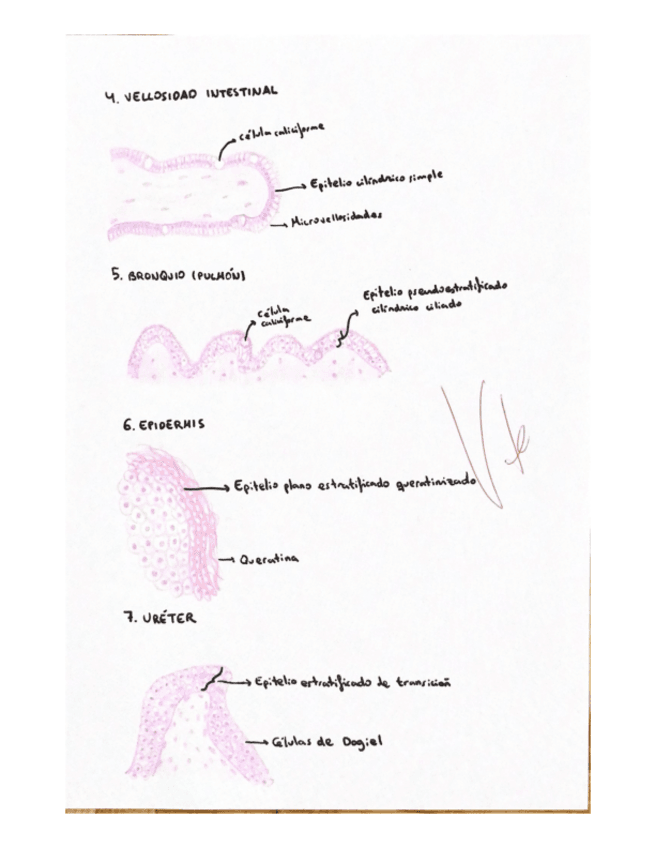 4. VELLOSIDAD INTESTINAL
Célula caliciforme
Epitelio cilíndrico simple
Microvellosidades
5. BRONQUIO (PULMÓN)
Célula
caliciforme
Epitelio pseudoestratificado
cilíndrico ciliado
6. EPIDERMIS
Epitelio plano estratificado queratinizado
Queratina
7. URÉTER
Epitelio estratificado de transición
Células de Dogiel